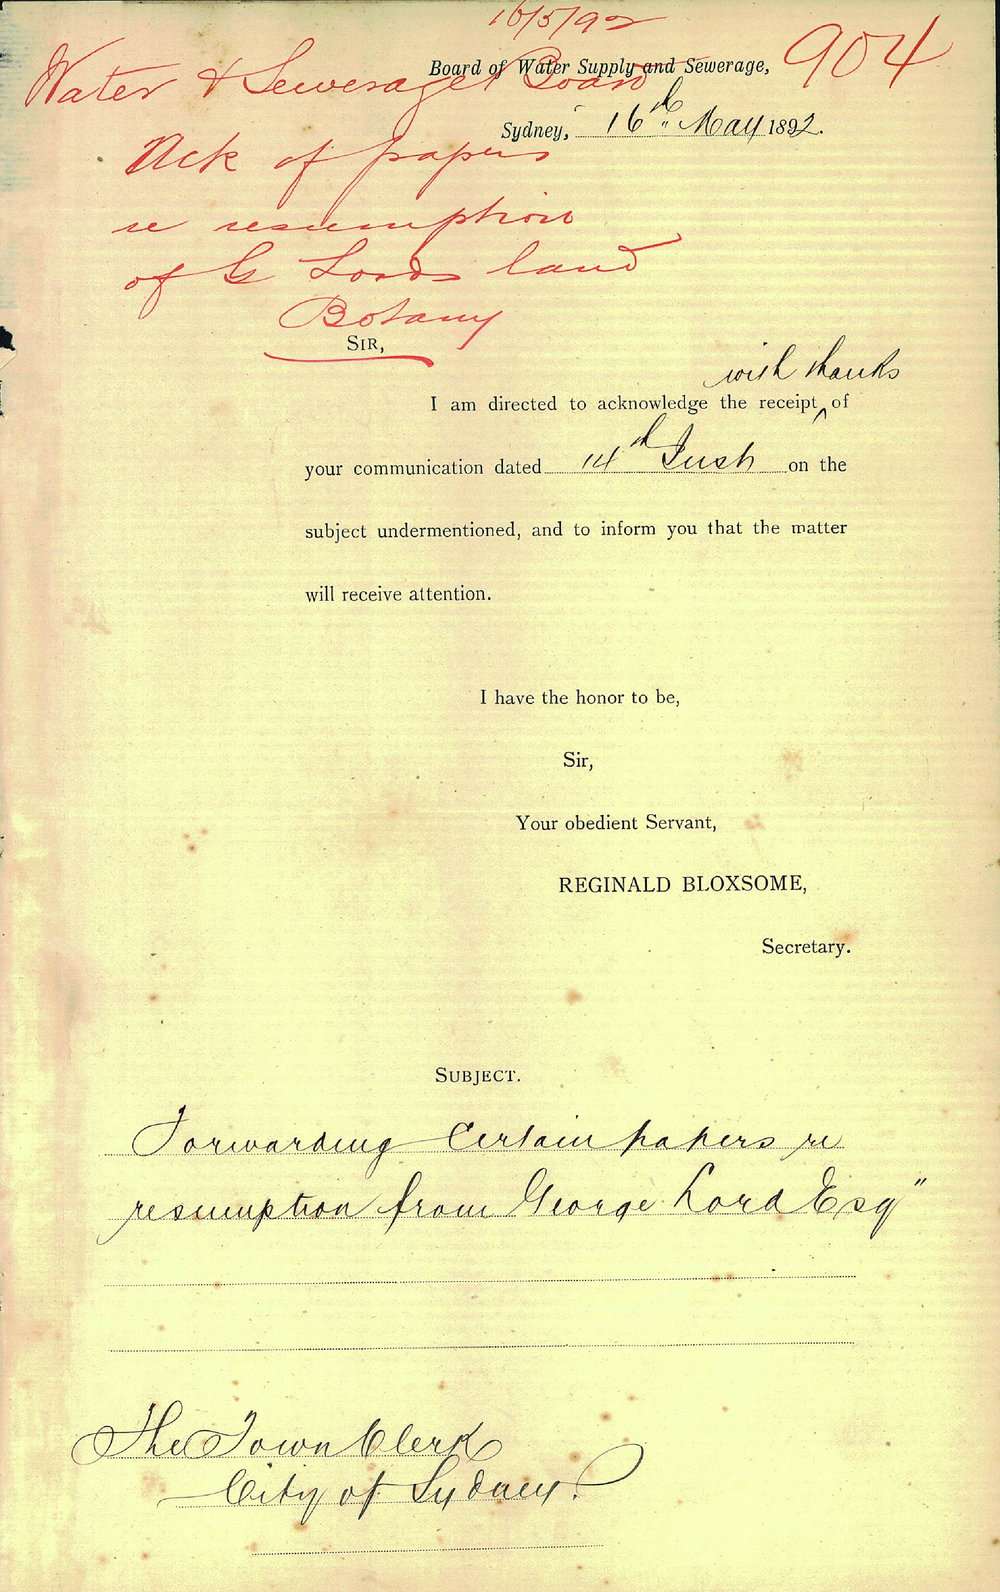 16/5/92
Water & Sewerage Board
904
Board of Water Supply and Sewerage,
Sydney, 16th May 1892.
Ack of papers
re resumption
of G Lords land
Botany
SIR,
with thanks
I am directed to acknowledge the receipt ‸ of
your communication dated 14th Inst on the
subject undermentioned, and to inform you that the matter
will receive attention.
I have the honor to be,
Sir,
Your obedient Servant,
REGINALD BLOXSOME,
Secretary.
SUBJECT.
Forwarding Certain papers re
resumption from George Lord Esq"
The Town Clerk
City of Sydney.